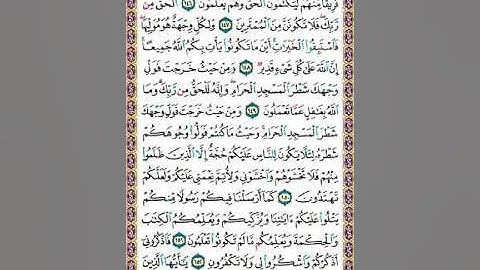 فَرِيقًا مِّنْهُمْ لَيَكْتُمُونَ الْحَقَّ وَهُمْ يَعْلَمُونَ ١٤٦ الْحَقُّ مِن
رَّبِّكَ فَلَا تَكُونَنَّ مِنَ الْمُمْتَرِينَ ١٤٧ وَلِكُلٍّ وِجْهَةٌ هُوَ مُوَلِّيهَا
فَاسْتَبِقُوا الْخَيْرَاتِ أَيْنَ مَا تَكُونُوا يَأْتِ بِكُمُ اللَّهُ جَمِيعًا
إِنَّ اللَّهَ عَلَىٰ كُلِّ شَيْءٍ قَدِيرٌ ١٤٨ وَمِنْ حَيْثُ خَرَجْتَ فَوَلِّ
وَجْهَكَ شَطْرَ الْمَسْجِدِ الْحَرَامِ وَإِنَّهُ لَلْحَقُّ مِن رَّبِّكَ وَمَا
اللَّهُ بِغَافِلٍ عَمَّا تَعْمَلُونَ ١٤٩ وَمِنْ حَيْثُ خَرَجْتَ فَوَلِّ وَجْهَكَ
شَطْرَ الْمَسْجِدِ الْحَرَامِ وَحَيْثُ مَا كُنتُمْ فَوَلُّوا وُجُوهَكُمْ
شَطْرَهُ لِئَلَّا يَكُونَ لِلنَّاسِ عَلَيْكُمْ حُجَّةٌ إِلَّا الَّذِينَ ظَلَمُوا
مِنْهُمْ فَلَا تَخْشَوْهُمْ وَاخْشَوْنِي وَلِأُتِمَّ نِعْمَتِي عَلَيْكُمْ وَلَعَلَّكُمْ
تَهْتَدُونَ ١٥٠ كَمَا أَرْسَلْنَا فِيكُمْ رَسُولًا مِّنكُمْ
يَتْلُو عَلَيْكُمْ آيَاتِنَا وَيُزَكِّيكُمْ وَيُعَلِّمُكُمُ الْكِتَابَ
وَالْحِكْمَةَ وَيُعَلِّمُكُم مَّا لَمْ تَكُونُوا تَعْلَمُونَ ١٥١ فَاذْكُرُونِي
أَذْكُرْكُمْ وَاشْكُرُوا لِي وَلَا تَكْفُرُونِ ١٥٢ يَا أَيُّهَا الَّذِينَ